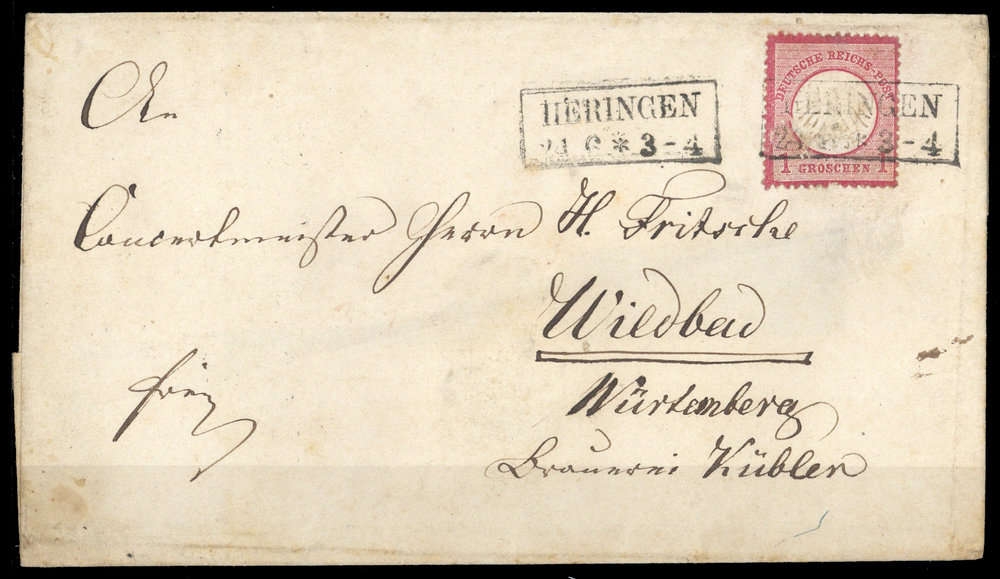 An
HERINGEN
24 6 * 3-4
DEUTSCHE REICHS-POST
1 GROSCHEN 1
HERINGEN
3-4
Concertmeister Herrn H. Fritsche
Wildbad
Würtemberg
Brauerei Kübler
frei